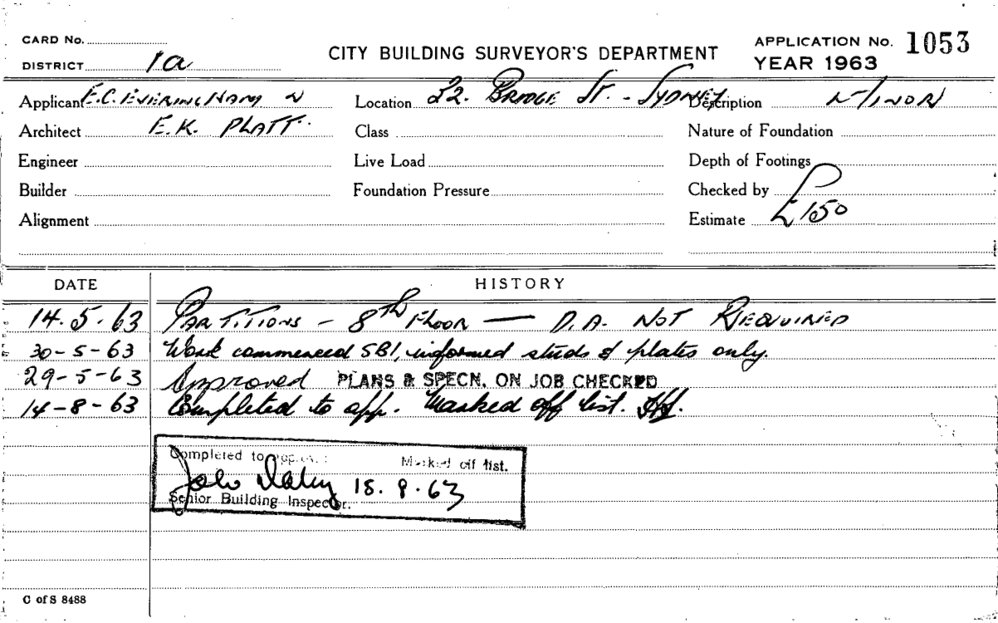 CARD No.
DISTRICT 1a
CITY BUILDING SURVEYOR'S DEPARTMENT
APPLICATION No. 1053
YEAR 1963
Applicant E.C. EVERINGHAM
Location 22. BRIDGE ST. - SYDNEY
Description MINOR
Architect E.K. PLATT.
Class
Nature of Foundation
Engineer
Live Load
Depth of Footings
Builder
Foundation Pressure
Checked by
Alignment
Estimate £150
DATE HISTORY
14.5.63 PARTITIONS - 8TH FLOOR - D.A. NOT REQUIRED
30-5-63 Work commenced SBI, informed studs & plates only.
29-5-63 Approved PLANS & SPECN. ON JOB CHECKED
14-8-63 Completed to app. Marked off list.
Completed to Marked off list.
John 18.9.63
Senior Building Inspector.
C of S 8488